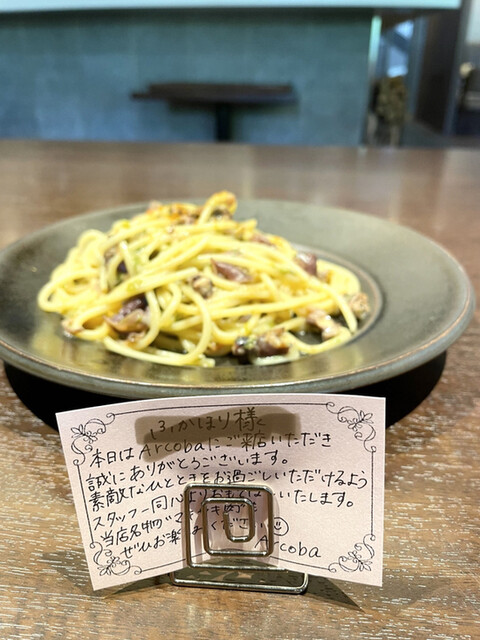 ふかほり様
本日はArcobaにご来店いただき
誠にありがとうございます。
素敵なひとときをお過ごしいただけるよう
スタッフ一同 いたします。
当店名物
ぜひお楽 ください
Arcoba